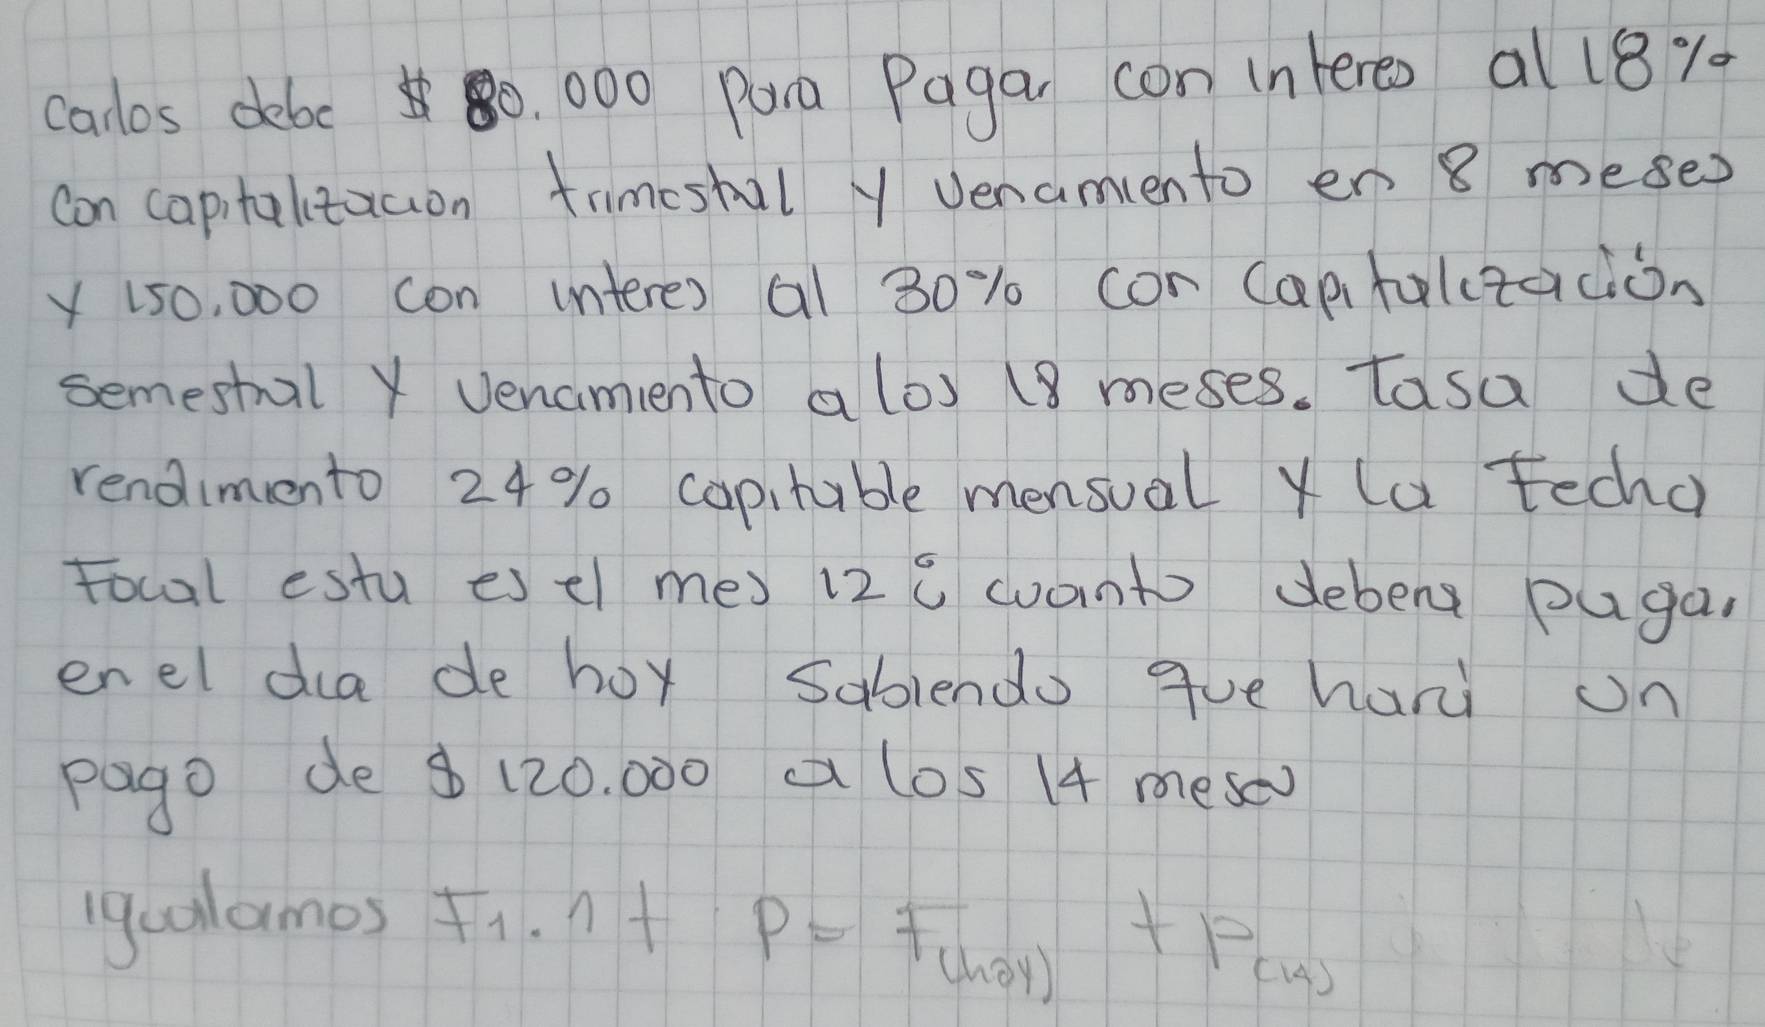 Carlos debe $ 80.000 para Pagar con interes al 18%
con capitalizacion trimestral y vencimiento en 8 meses
y 150.000 con interes al 30% con capitalización
semestral y vencimiento a los 18 meses. Tasa de
rendimiento 24% capitable mensual y la fecha
Focal esta es el mes 12 ¿ cuanto debera pagar
en el dia de hoy sabiendo que hará un
pago de $ 120.000 a los 14 meses
igualamos F1. n + P = F(hoy) + P(14)